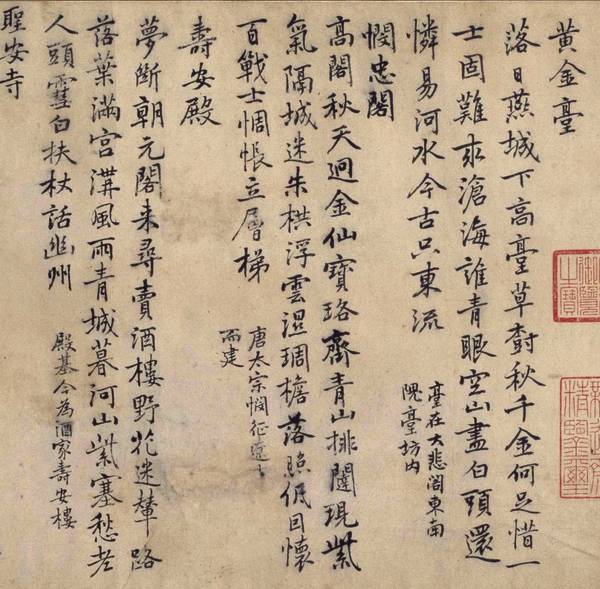 黄金臺
落日燕城下高臺草樹秋千金何足惜一
士固難求滄海誰青眼空山盡白頭還
憐易河水今古只東流
臺在大悲閣東南
隗臺坊内
憫忠閣
高閣秋天迥金仙寶珞齊青山排闥現紫
氣隔城迷朱栱浮雲濕琱檐落照低回懷
百戰士惆悵立層梯
唐太宗憫征遼士
而建
壽安殿
夢斷朝元閣来尋賣酒樓野花迷輦路
落葉滿宫溝風雨青城暮河山紫塞愁老
人頭雪白扶杖話幽州
殿基今為酒家壽安樓
聖安寺